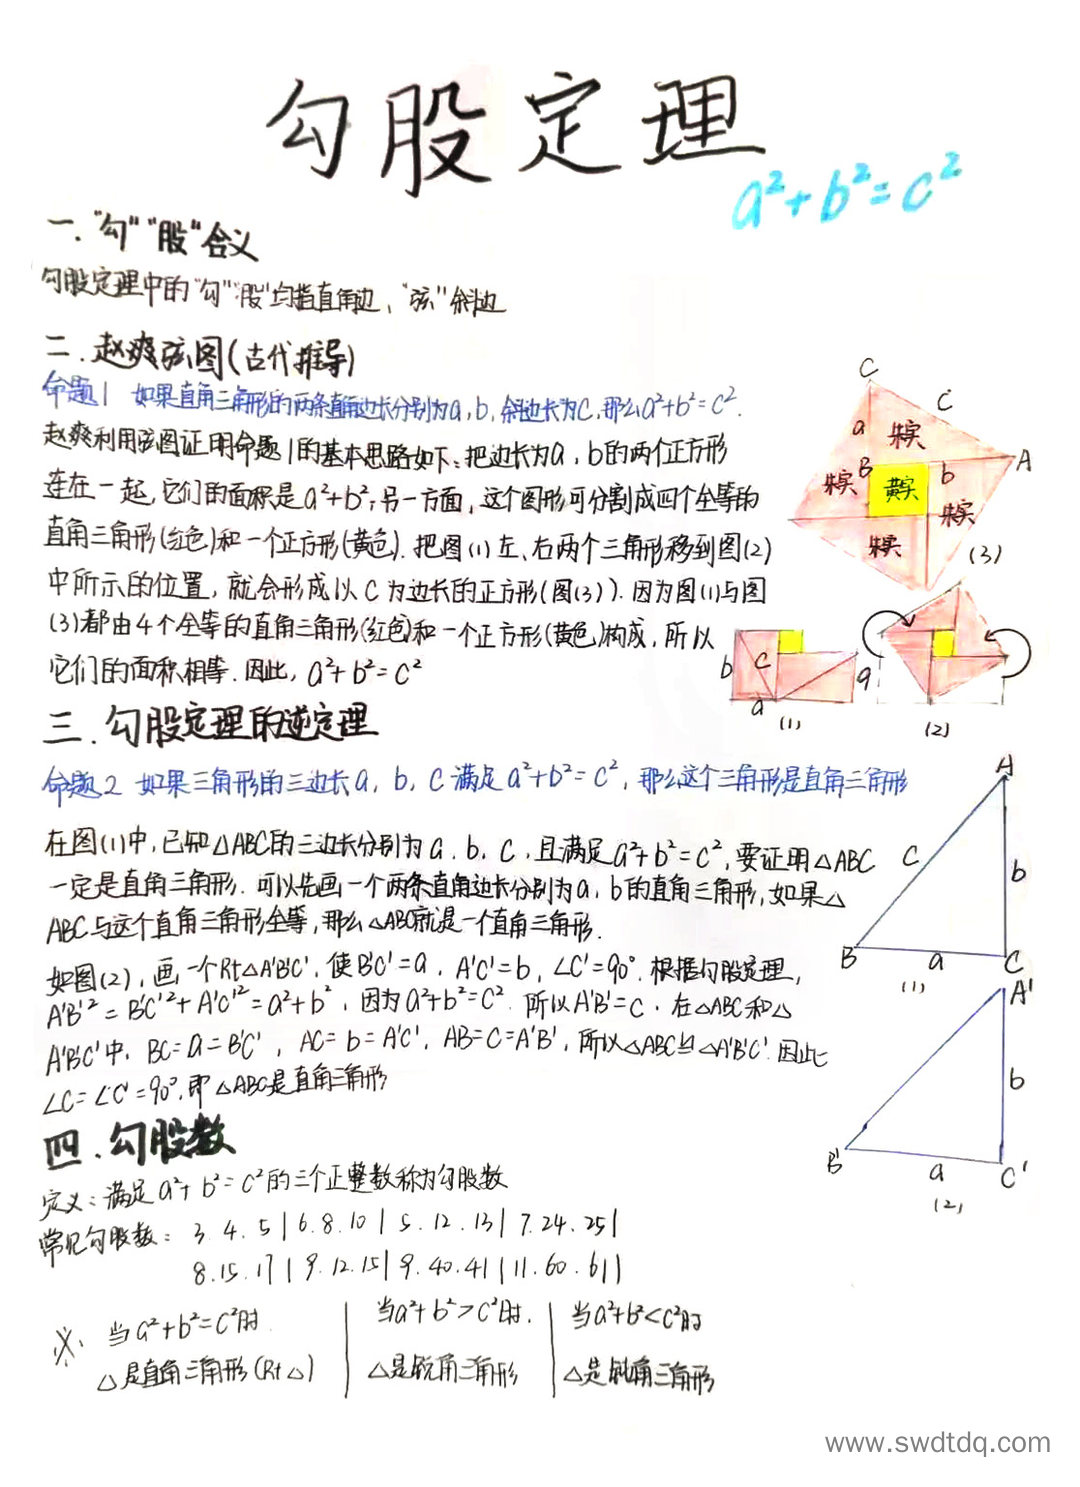 勾股定理
a²+b²=c²
一."勾""股"含义
勾股定理中的"勾""股"均指直角边,"弦"斜边
二.赵爽弦图(古代推导)
命题1 如果直角三角形的两条直角边长分别为a,b,斜边长为c,那么a²+b²=c².
赵爽利用弦图证明命题1的基本思路如下:把边长为a,b的两个正方形
连在一起,它们的面积是a²+b²;另一方面,这个图形可分割成四个全等的
直角三角形(红色)和一个正方形(黄色).把图(1)左、右两个三角形移到图(2)
中所示的位置,就会形成以c为边长的正方形(图(3)).因为图(1)与图
(3)都由4个全等的直角三角形(红色)和一个正方形(黄色)构成,所以
它们的面积相等.因此,a²+b²=c²
C
c
a
朱实
A
B
b
朱实
黄实
朱实
朱实
(3)
b
c
a
a
(1)
(2)
三.勾股定理的逆定理
命题2 如果三角形的三边长a,b,c满足a²+b²=c²,那么这个三角形是直角三角形
在图(1)中,已知△ABC的三边长分别为a.b.c,且满足a²+b²=c²,要证明△ABC
一定是直角三角形.可以先画一个两条直角边长分别为a,b的直角三角形,如果△
ABC与这个直角三角形全等,那么△ABC就是一个直角三角形.
如图(2),画一个Rt△A'B'C',使B'C'=a,A'C'=b,∠C'=90°.根据勾股定理,
A'B'²=B'C'²+A'C'²=a²+b²,因为a²+b²=c².所以A'B'=c.在△ABC和△
A'B'C'中,BC=a=B'C',AC=b=A'C',AB=c=A'B',所以△ABC≌△A'B'C'.因此
∠C=∠C'=90°,即△ABC是直角三角形
A
c
b
B
a
C
(1)
A'
b
B'
a
C'
(2)
四.勾股数
定义:满足a²+b²=c²的三个正整数称为勾股数
常见勾股数: 3.4.5|6.8.10|5.12.13|7.24.25|
8.15.17|9.12.15|9.40.41|11.60.61|
※. 当a²+b²=c²时 | 当a²+b²>c²时. | 当a²+b²<c²时
△是直角三角形(Rt△) | △是锐角三角形 | △是钝角三角形
www.swdtdq.com